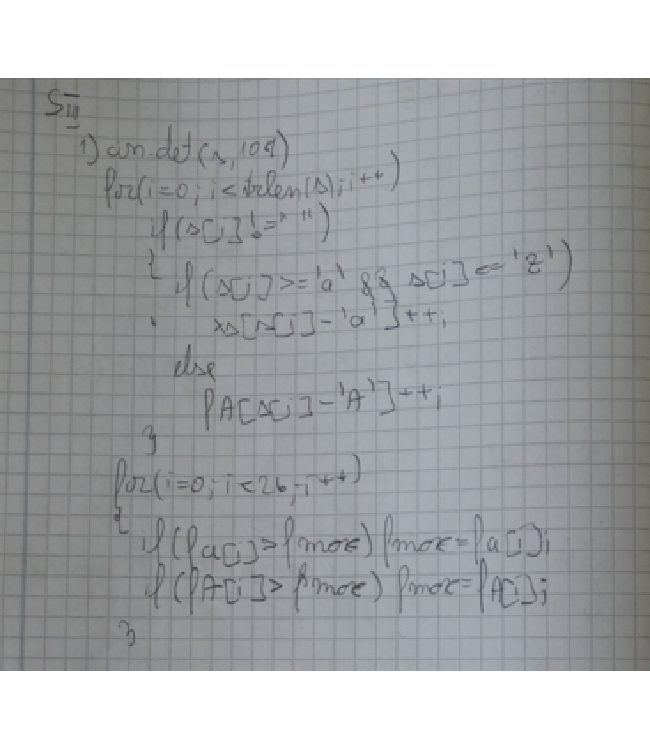 SIII
1) cin.get(s,101)
for(i=0; i<strlen(s); i++)
if(s[i]!=" ")
{
if(s[i]>='a' && s[i]<='z')
[s[i]-'a']++;
else
fA[s[i]-'A']++;
}
for(i=0; i<26; i++)
{
if(fa[i]>fmax) fmax=fa[i];
if(fA[i]>fmax) fmax=fA[i];
}